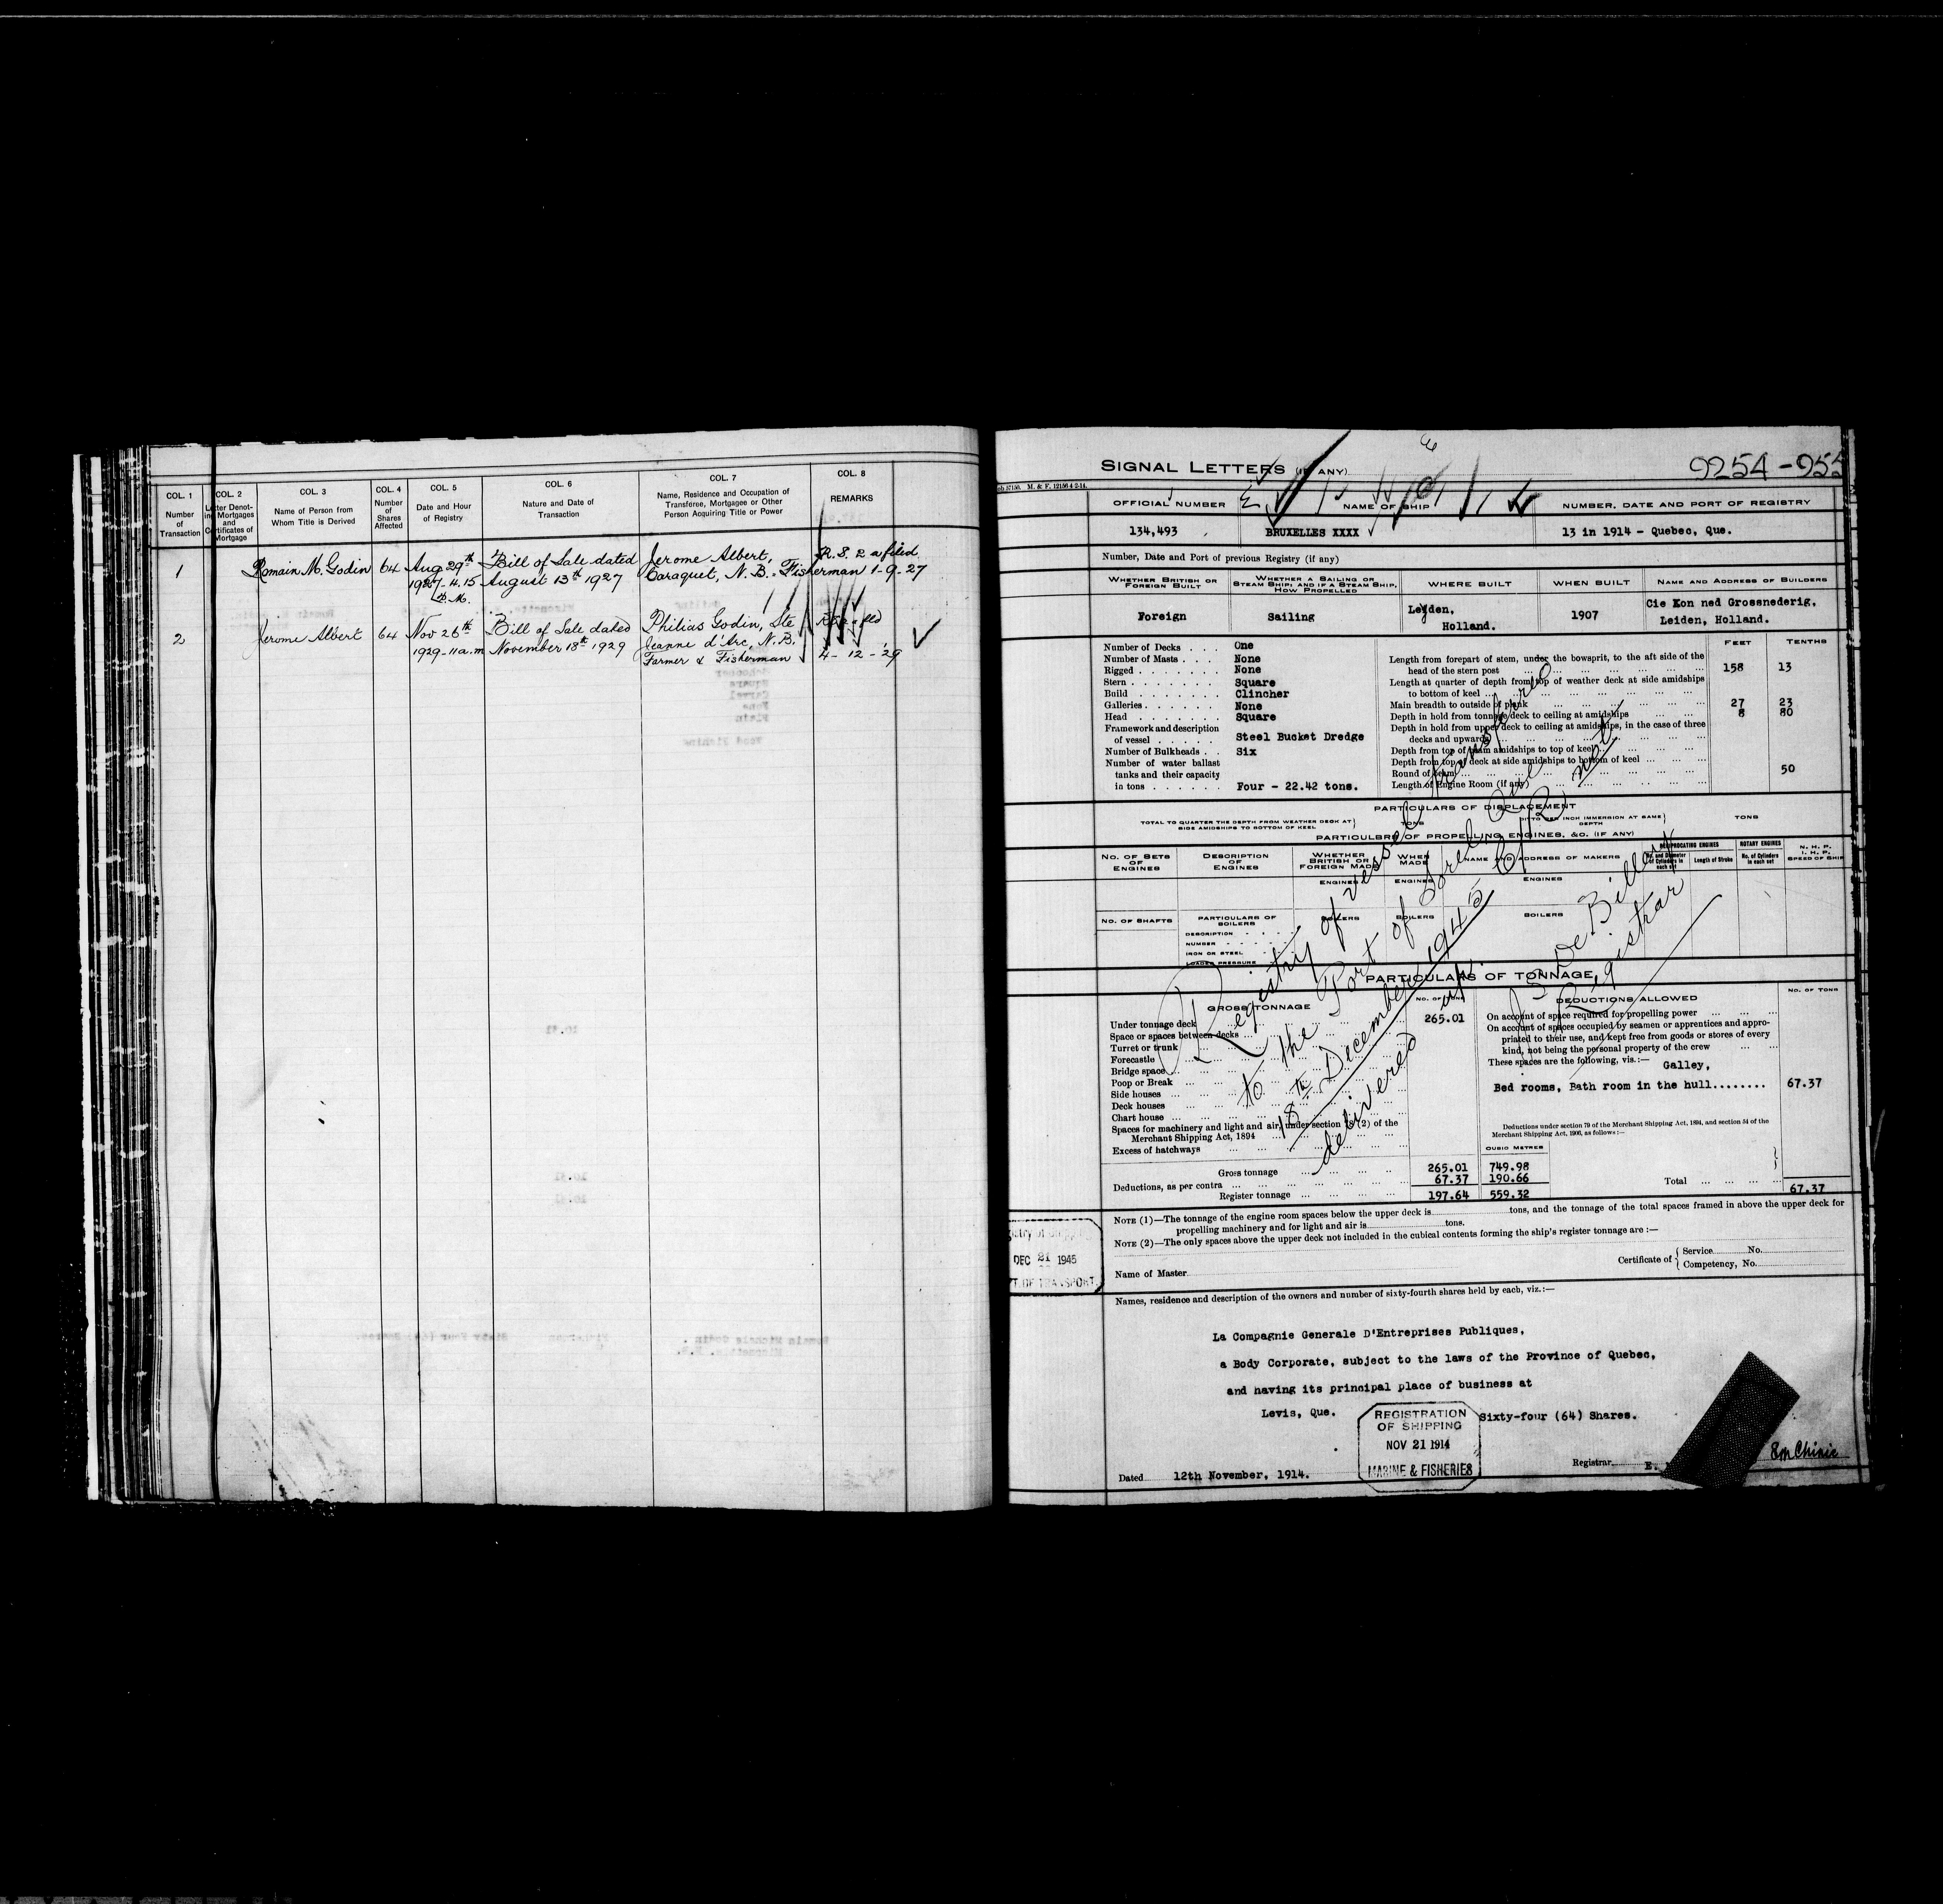 COL. 1
Number
of
Transaction
COL. 2
Letter Denot-
ing Mortgages
and
Certificates of
Mortgage
COL. 3
Name of Person from
Whom Title is Derived
COL. 4
Number
of
Shares
Affected
COL. 5
Date and Hour
of Registry
COL. 6
Nature and Date of
Transaction
COL. 7
Name, Residence and Occupation of
Transferee, Mortgagee or Other
Person Acquiring Title or Power
COL. 8
REMARKS
1 Romain M. Godin 64 Aug 29th Bill of Sale dated Jerome Albert, R. S. 2 a filed
1927 - 4.15 August 13th 1927 Caraquet, N. B. Fisherman 1-9-27
P. M.
2 Jerome Albert 64 Nov 26th Bill of Sale dated Philias Godin, Ste
1929 - 11 a.m November 18th 1929 Jeanne d'Arc, N. B.
Farmer & Fisherman 4-12-29
SIGNAL LETTERS (IF ANY)
9254-955
M. & F. 12156 4-2-14.
OFFICIAL NUMBER NAME OF SHIP NUMBER, DATE AND PORT OF REGISTRY
134,493 BRUXELLES XXXX 13 in 1914 - Quebec, Que.
Number, Date and Port of previous Registry (if any)
WHETHER BRITISH OR
FOREIGN BUILT
WHETHER A SAILING OR
STEAM SHIP; AND IF A STEAM SHIP,
HOW PROPELLED
WHERE BUILT
WHEN BUILT
NAME AND ADDRESS OF BUILDERS
Foreign Sailing Leyden,
Holland.
1907
Cie Kon ned Grossnederig,
Leiden, Holland.
Number of Decks . . . One
Number of Masts . . . None
Rigged . . . . . . . None
Stern . . . . . . . Square
Build . . . . . . . Clincher
Galleries . . . . . . None
Head . . . . . . . Square
Framework and description
of vessel . . . . . . Steel Bucket Dredge
Number of Bulkheads . . Six
Number of water ballast
tanks and their capacity
in tons . . . . . . Four - 22.42 tons.
FEET TENTHS
Length from forepart of stem, under the bowsprit, to the aft side of the
head of the stern post 158 13
Length at quarter of depth from top of weather deck at side amidships
to bottom of keel
Main breadth to outside of plank 27 23
Depth in hold from tonnage deck to ceiling at amidships 8 80
Depth in hold from upper deck to ceiling at amidships, in the case of three
decks and upwards
Depth from top of beam amidships to top of keel
Depth from top of deck at side amidships to bottom of keel
Round of beam 50
Length of Engine Room (if any)
PARTICULARS OF DISPLACEMENT
TOTAL TO QUARTER THE DEPTH FROM WEATHER DECK AT
SIDE AMIDSHIPS TO BOTTOM OF KEEL
TONS
DITTO PER INCH IMMERSION AT SAME
DEPTH
TONS
PARTICULARS OF PROPELLING ENGINES, &C. (IF ANY)
NO. OF SETS
OF
ENGINES
DESCRIPTION
OF
ENGINES
WHETHER
BRITISH OR
FOREIGN MADE
WHEN
MADE
NAME AND ADDRESS OF MAKERS
RECIPROCATING ENGINES
No. and Diameter
of Cylinders in
each set
Length of Stroke
ROTARY ENGINES
No. of Cylinders
in each set
N. H. P.
I. H. P.
SPEED OF SHIP
ENGINES ENGINES ENGINES
NO. OF SHAFTS
PARTICULARS OF
BOILERS
BOILERS BOILERS BOILERS
DESCRIPTION
NUMBER
IRON OR STEEL
LOADED PRESSURE
PARTICULARS OF TONNAGE
GROSS TONNAGE NO. OF TONS
Under tonnage deck 265.01
Space or spaces between decks
Turret or trunk
Forecastle
Bridge space
Poop or Break
Side houses
Deck houses
Chart house
Spaces for machinery and light and air, under section 78 (2) of the
Merchant Shipping Act, 1894
Excess of hatchways
Gross tonnage 265.01 749.98
Deductions, as per contra 67.37 190.66
Register tonnage 197.64 559.32
CUBIC METRES
DEDUCTIONS ALLOWED NO. OF TONS
On account of space required for propelling power
On account of spaces occupied by seamen or apprentices and appro-
priated to their use, and kept free from goods or stores of every
kind, not being the personal property of the crew
These spaces are the following, viz.:—
Galley,
Bed rooms, Bath room in the hull........ 67.37
Deductions under section 79 of the Merchant Shipping Act, 1894, and section 54 of the
Merchant Shipping Act, 1906, as follows:—
Total 67.37
Registry of vessel transferred
to the Port of Sorel Que
18th December 1945
delivered up
C/R not
De Billy
Registrar
NOTE (1)—The tonnage of the engine room spaces below the upper deck is tons, and the tonnage of the total spaces framed in above the upper deck for
propelling machinery and for light and air is tons.
NOTE (2)—The only spaces above the upper deck not included in the cubical contents forming the ship's register tonnage are :—
DEC 21 1945
T. OF TRANSPORT
Name of Master
Certificate of { Service No.
Competency, No.
Names, residence and description of the owners and number of sixty-fourth shares held by each, viz.:—
La Compagnie Generale D'Entreprises Publiques,
a Body Corporate, subject to the laws of the Province of Quebec,
and having its principal place of business at
Levis, Que. Sixty-four (64) Shares.
REGISTRATION
OF SHIPPING
NOV 21 1914
MARINE & FISHERIES
Dated 12th November, 1914.
Registrar E.
Chinic